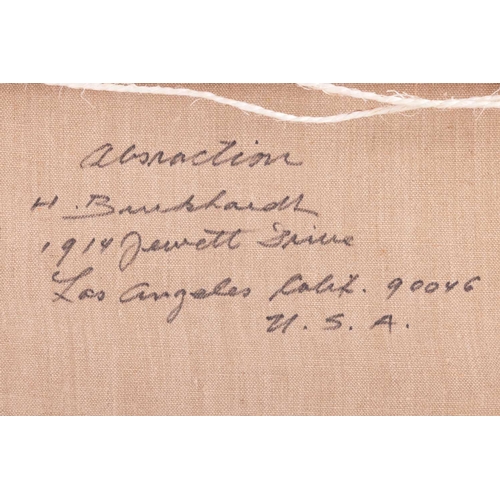 Absraction
H. Burkhardt
1914 Jewett Drive
Los Angeles Calif. 90046
U. S. A.